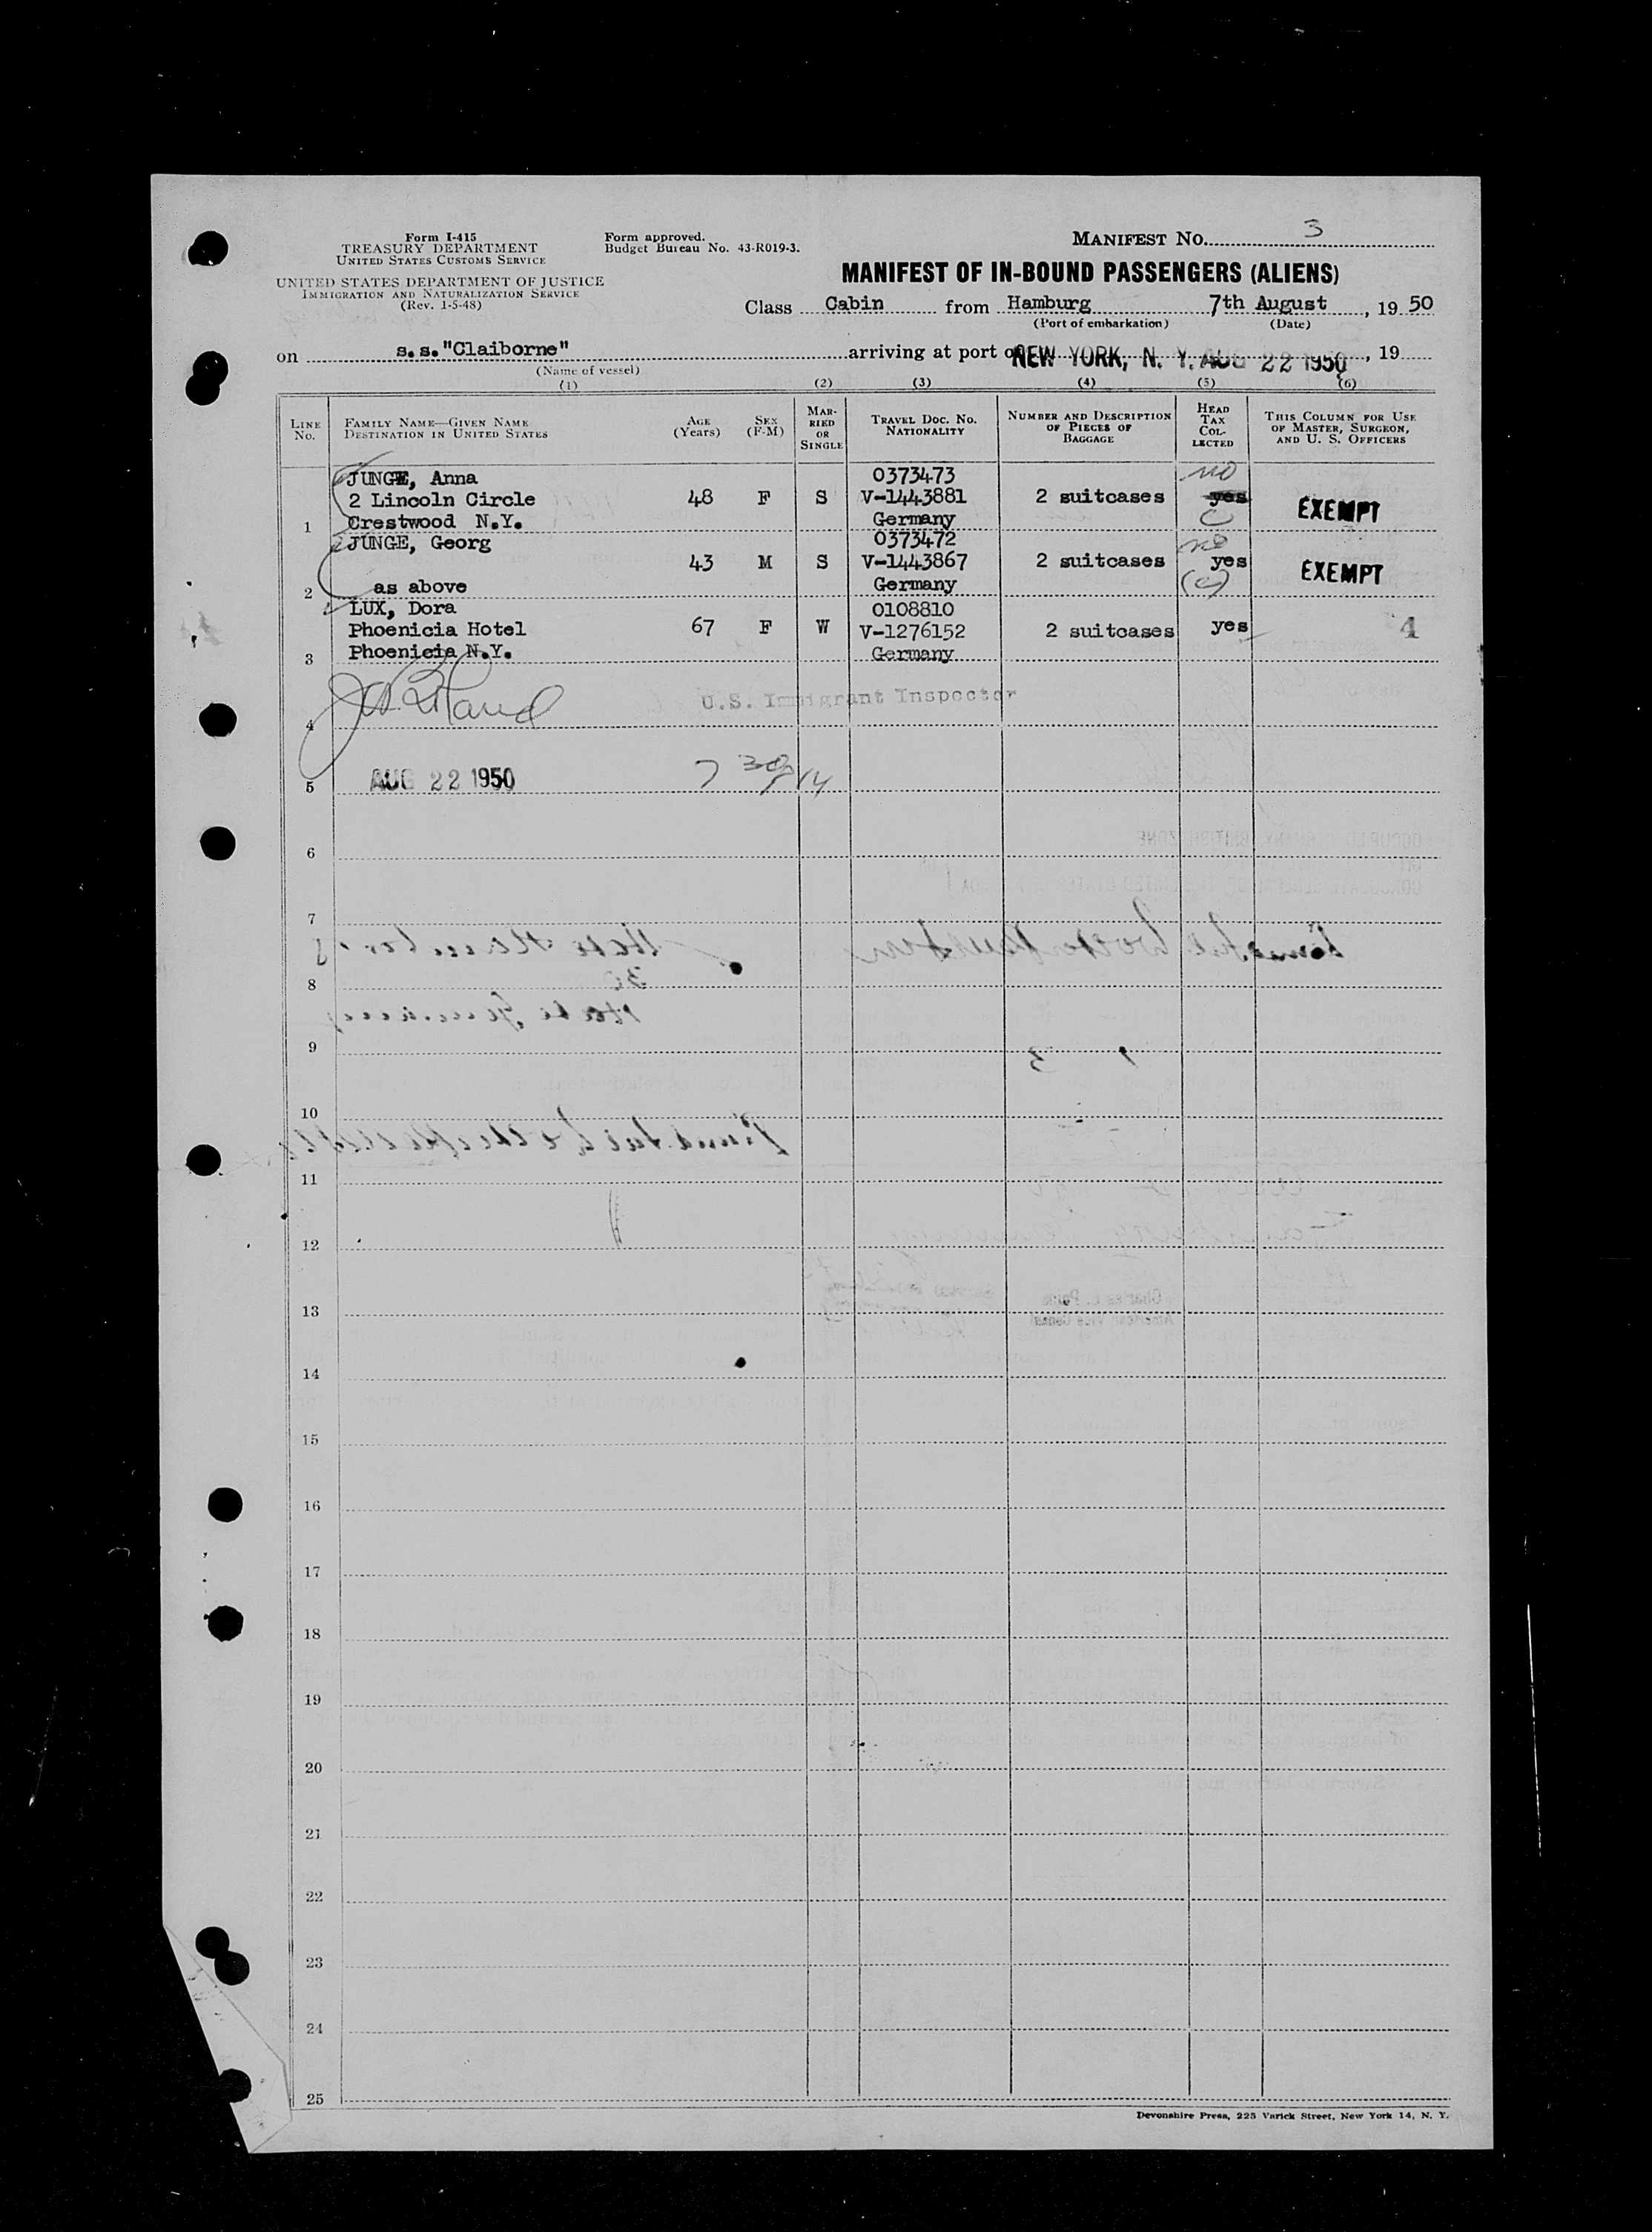 Form I-415
TREASURY DEPARTMENT
UNITED STATES CUSTOMS SERVICE
UNITED STATES DEPARTMENT OF JUSTICE
IMMIGRATION AND NATURALIZATION SERVICE
(Rev. 1-5-48)
Form approved.
Budget Bureau No. 43-R019-3.
MANIFEST NO. 3
MANIFEST OF IN-BOUND PASSENGERS (ALIENS)
Class Cabin from Hamburg 7th August, 19 50
(Port of embarkation) (Date)
on s.s."Claiborne" arriving at port of NEW YORK, N. Y. AUG 22 1950, 19
(Name of vessel)
(1) (2) (3) (4) (5) (6)
LINE No.
FAMILY NAME—GIVEN NAME
DESTINATION IN UNITED STATES
AGE (Years)
SEX (F-M)
MARRIED OR SINGLE
TRAVEL DOC. NO.
NATIONALITY
NUMBER AND DESCRIPTION OF PIECES OF BAGGAGE
HEAD TAX COLLECTED
THIS COLUMN FOR USE OF MASTER, SURGEON, AND U. S. OFFICERS
JUNGE, Anna 0373473 no
2 Lincoln Circle 48 F S V-1443881 2 suitcases yes EXEMPT
1 Crestwood N.Y. Germany C
JUNGE, Georg 0373472 no
43 M S V-1443867 2 suitcases yes EXEMPT
2 as above Germany (c)
LUX, Dora 0108810
Phoenicia Hotel 67 F W V-1276152 2 suitcases yes 4
3 Phoenicia N.Y. Germany
U.S. Immigrant Inspector
4
5 AUG 22 1950 7
6
7
8
9
10
11
12
13
14
15
16
17
18
19
20
21
22
23
24
25
Devonshire Press, 225 Varick Street, New York 14, N. Y.